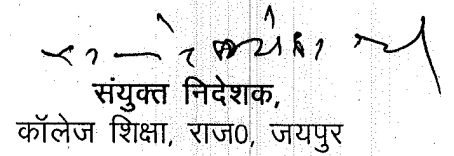 संयुक्त निदेशक,
कॉलेज शिक्षा, राज0, जयपुर